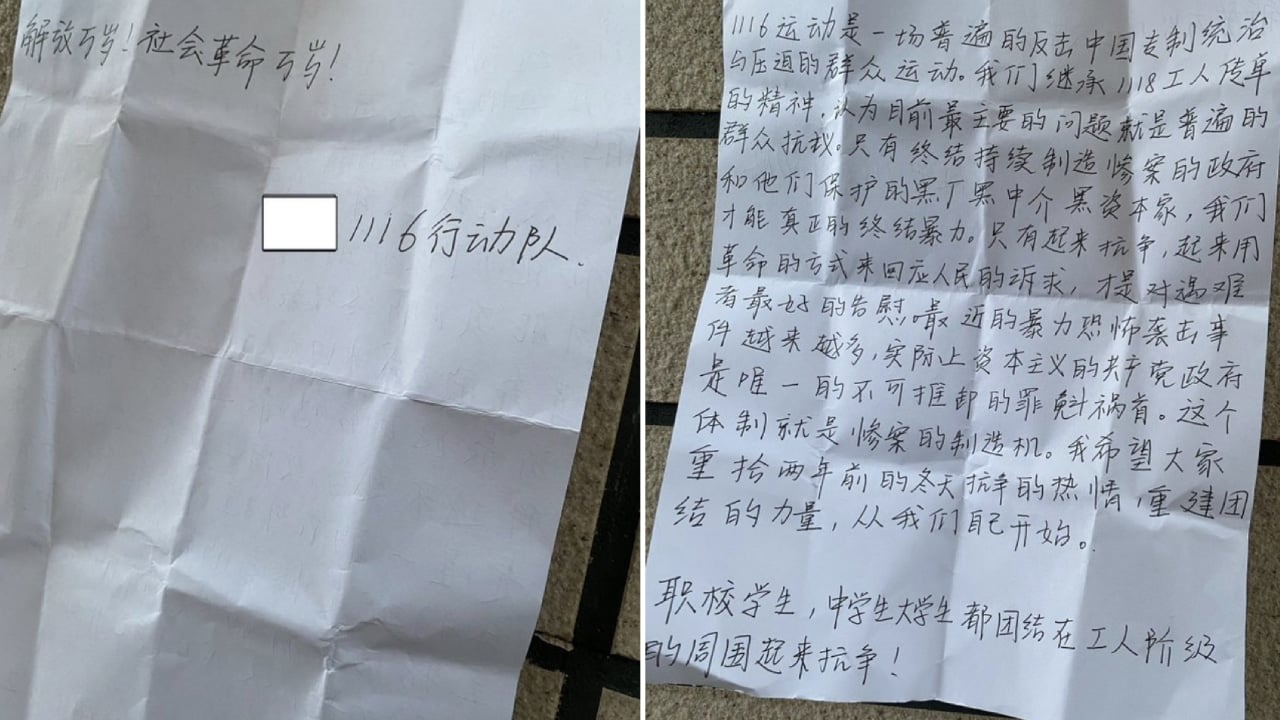 解放万岁！社会革命万岁！
1116行动队.
1116运动是一场普遍的反击中国专制统治
与压迫的群众运动。我们继承1118工人传单
的精神，认为目前最主要的问题就是普遍的
群众抗议。只有终结持续制造惨案的政府
和他们保护的黑厂黑中介黑资本家，我们
才能真正的终结暴力。只有起来抗争，起来用
革命的方式来回应人民的诉求，才是对遇难
者最好的告慰。最近的暴力恐怖袭击事
件越来越多，实际上资本主义的共产党政府
是唯一的不可推卸的罪魁祸首。这个
体制就是惨案的制造机。我希望大家
重拾两年前的冬天抗争的热情，重建团
结的力量，从我们自己开始。
职校学生，中学生大学生都团结在工人阶级
的周围起来抗争！